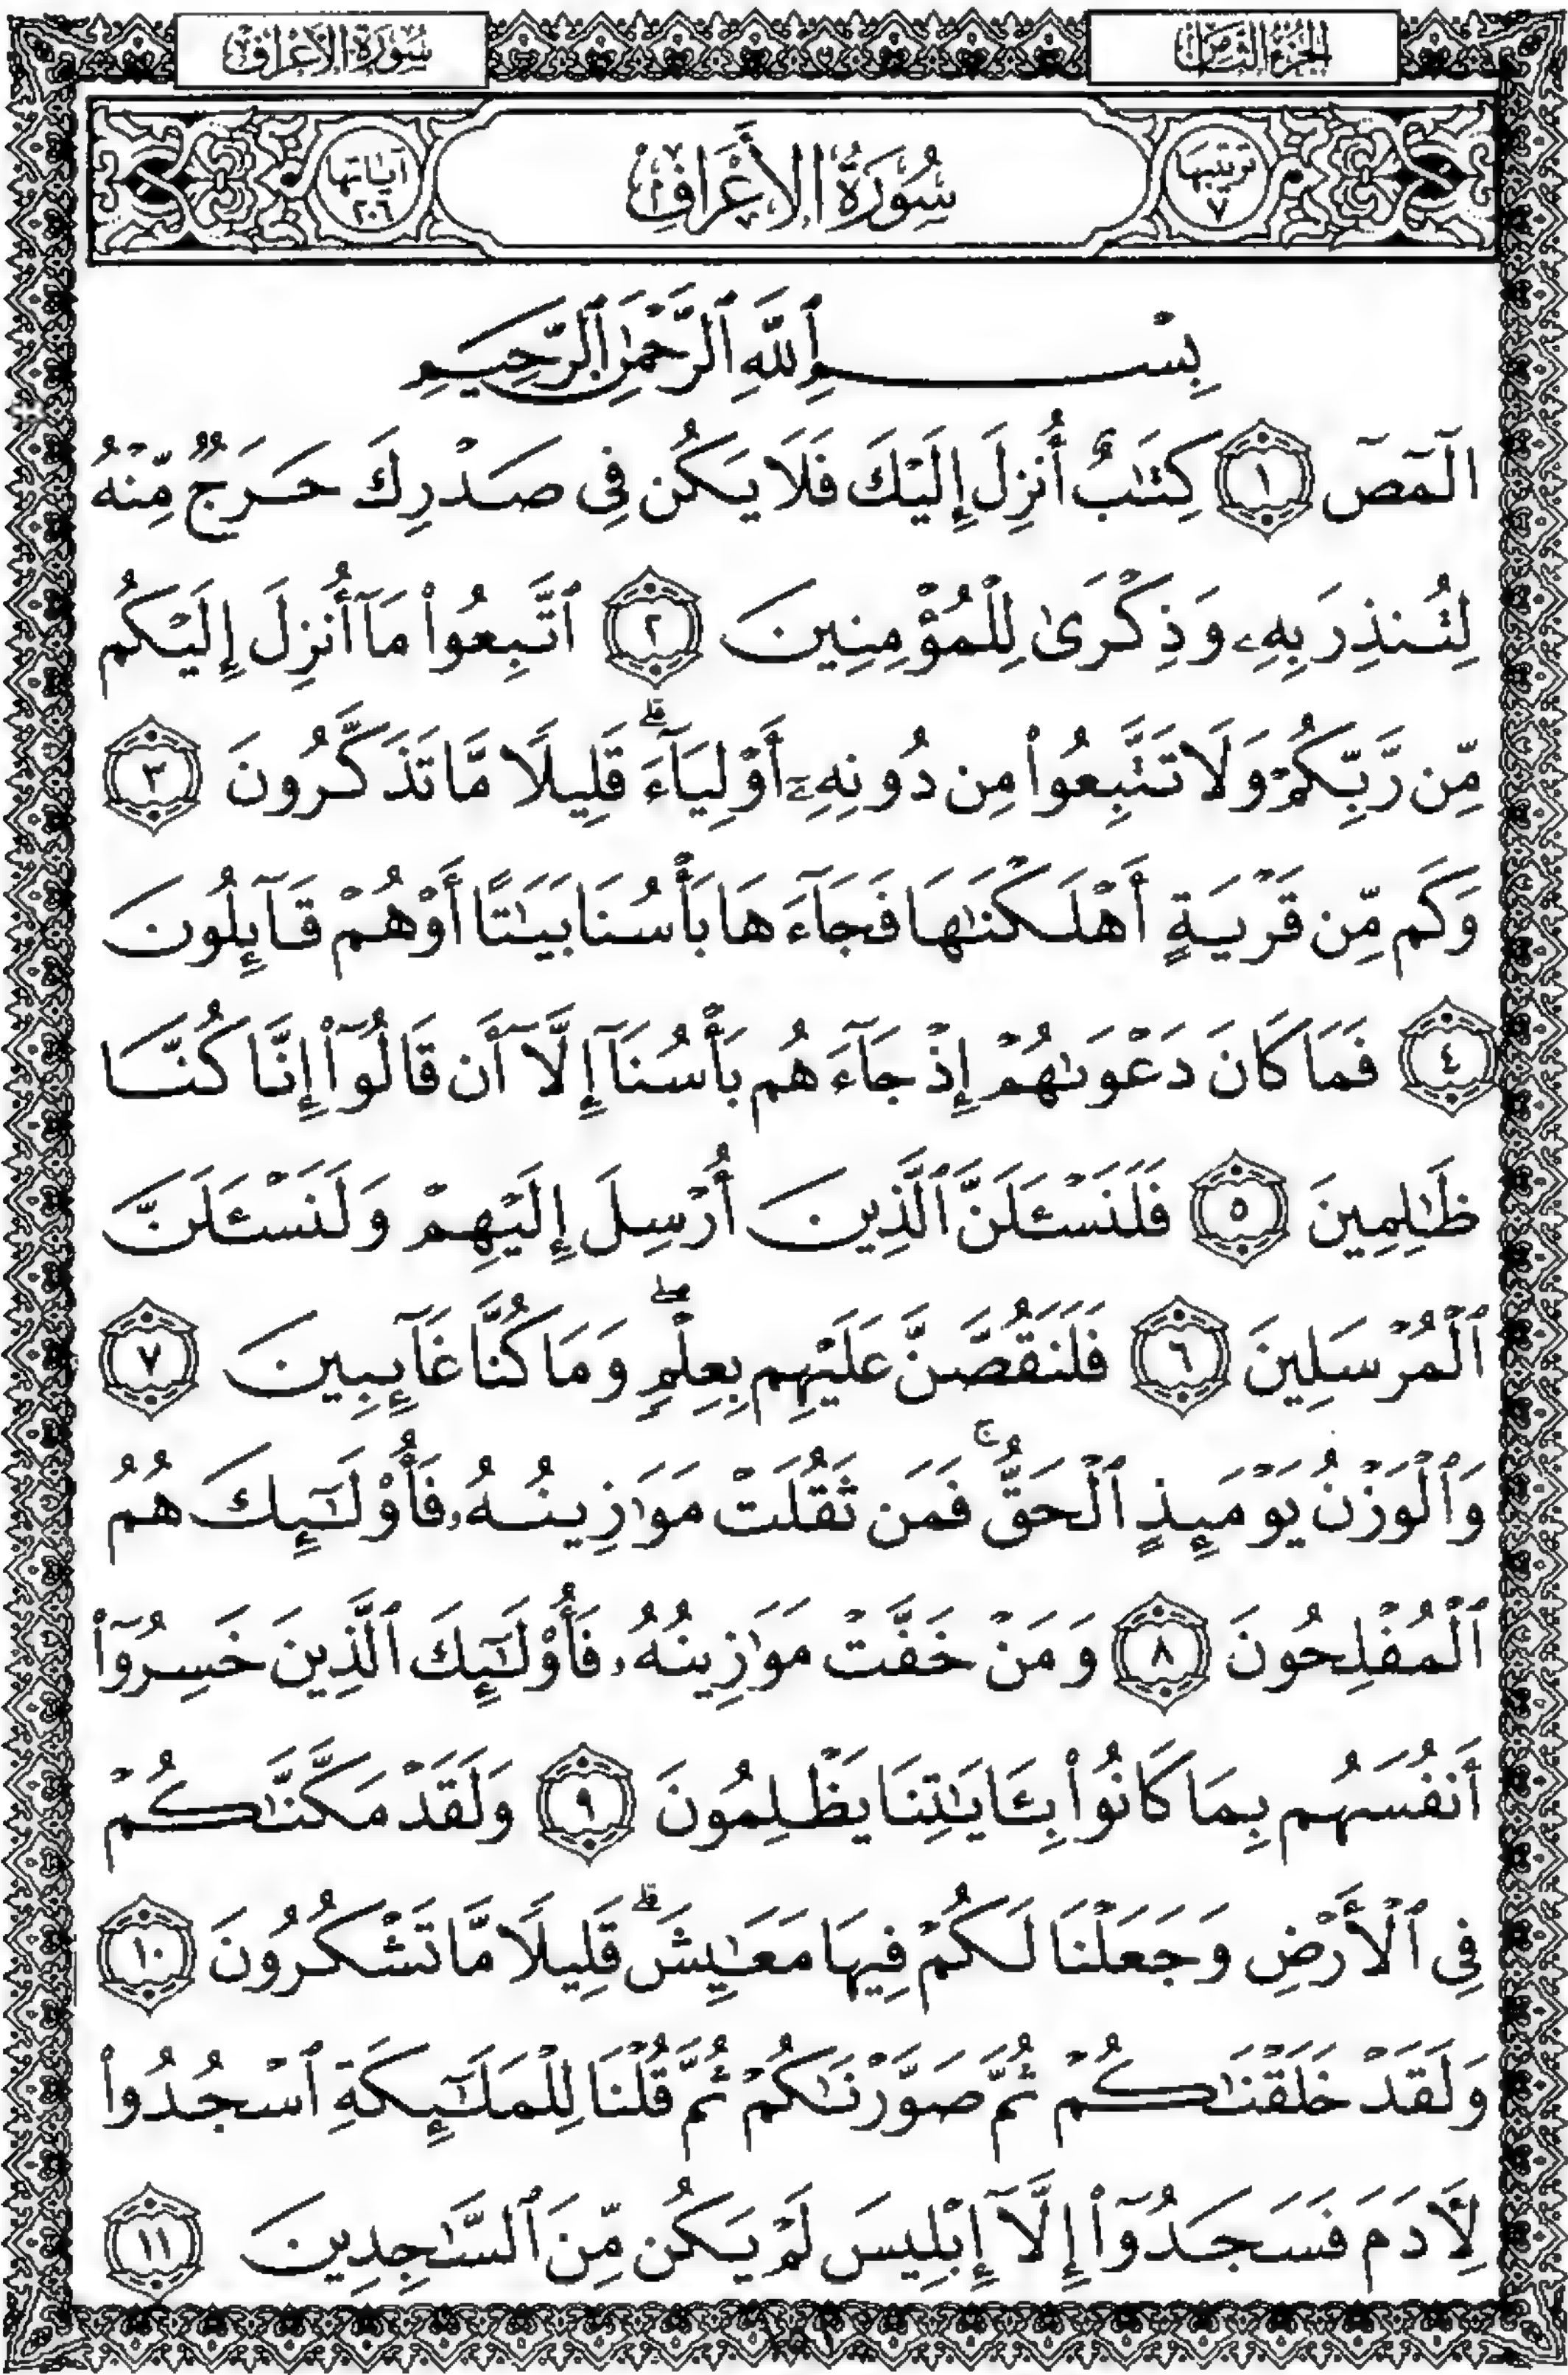 الجزء الثامن
سورة الأعراف
ترتيبها ٧
سُورَةُ الأَعْرَافِ
آياتها ٢٠٦
بِسْمِ ٱللَّهِ ٱلرَّحْمَٰنِ ٱلرَّحِيمِ
الٓمٓصٓ ١ كِتَٰبٌ أُنزِلَ إِلَيْكَ فَلَا يَكُن فِى صَدْرِكَ حَرَجٌ مِّنْهُ
لِتُنذِرَ بِهِۦ وَذِكْرَىٰ لِلْمُؤْمِنِينَ ٢ ٱتَّبِعُوا۟ مَآ أُنزِلَ إِلَيْكُم
مِّن رَّبِّكُمْ وَلَا تَتَّبِعُوا۟ مِن دُونِهِۦٓ أَوْلِيَآءَ ۗ قَلِيلًا مَّا تَذَكَّرُونَ ٣
وَكَم مِّن قَرْيَةٍ أَهْلَكْنَٰهَا فَجَآءَهَا بَأْسُنَا بَيَٰتًا أَوْ هُمْ قَآئِلُونَ
٤ فَمَا كَانَ دَعْوَىٰهُمْ إِذْ جَآءَهُم بَأْسُنَآ إِلَّآ أَن قَالُوٓا۟ إِنَّا كُنَّا
ظَٰلِمِينَ ٥ فَلَنَسْـَٔلَنَّ ٱلَّذِينَ أُرْسِلَ إِلَيْهِمْ وَلَنَسْـَٔلَنَّ
ٱلْمُرْسَلِينَ ٦ فَلَنَقُصَّنَّ عَلَيْهِم بِعِلْمٍ ۖ وَمَا كُنَّا غَآئِبِينَ ٧
وَٱلْوَزْنُ يَوْمَئِذٍ ٱلْحَقُّ ۚ فَمَن ثَقُلَتْ مَوَٰزِينُهُۥ فَأُو۟لَٰٓئِكَ هُمُ
ٱلْمُفْلِحُونَ ٨ وَمَنْ خَفَّتْ مَوَٰزِينُهُۥ فَأُو۟لَٰٓئِكَ ٱلَّذِينَ خَسِرُوٓا۟
أَنفُسَهُم بِمَا كَانُوا۟ بِـَٔايَٰتِنَا يَظْلِمُونَ ٩ وَلَقَدْ مَكَّنَّٰكُمْ
فِى ٱلْأَرْضِ وَجَعَلْنَا لَكُمْ فِيهَا مَعَٰيِشَ ۗ قَلِيلًا مَّا تَشْكُرُونَ ١٠
وَلَقَدْ خَلَقْنَٰكُمْ ثُمَّ صَوَّرْنَٰكُمْ ثُمَّ قُلْنَا لِلْمَلَٰٓئِكَةِ ٱسْجُدُوا۟
لِـَٔادَمَ فَسَجَدُوٓا۟ إِلَّآ إِبْلِيسَ لَمْ يَكُن مِّنَ ٱلسَّٰجِدِينَ ١١